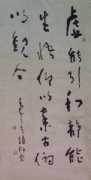 虚能引和静能
生悟仰以察古俯
以觀今